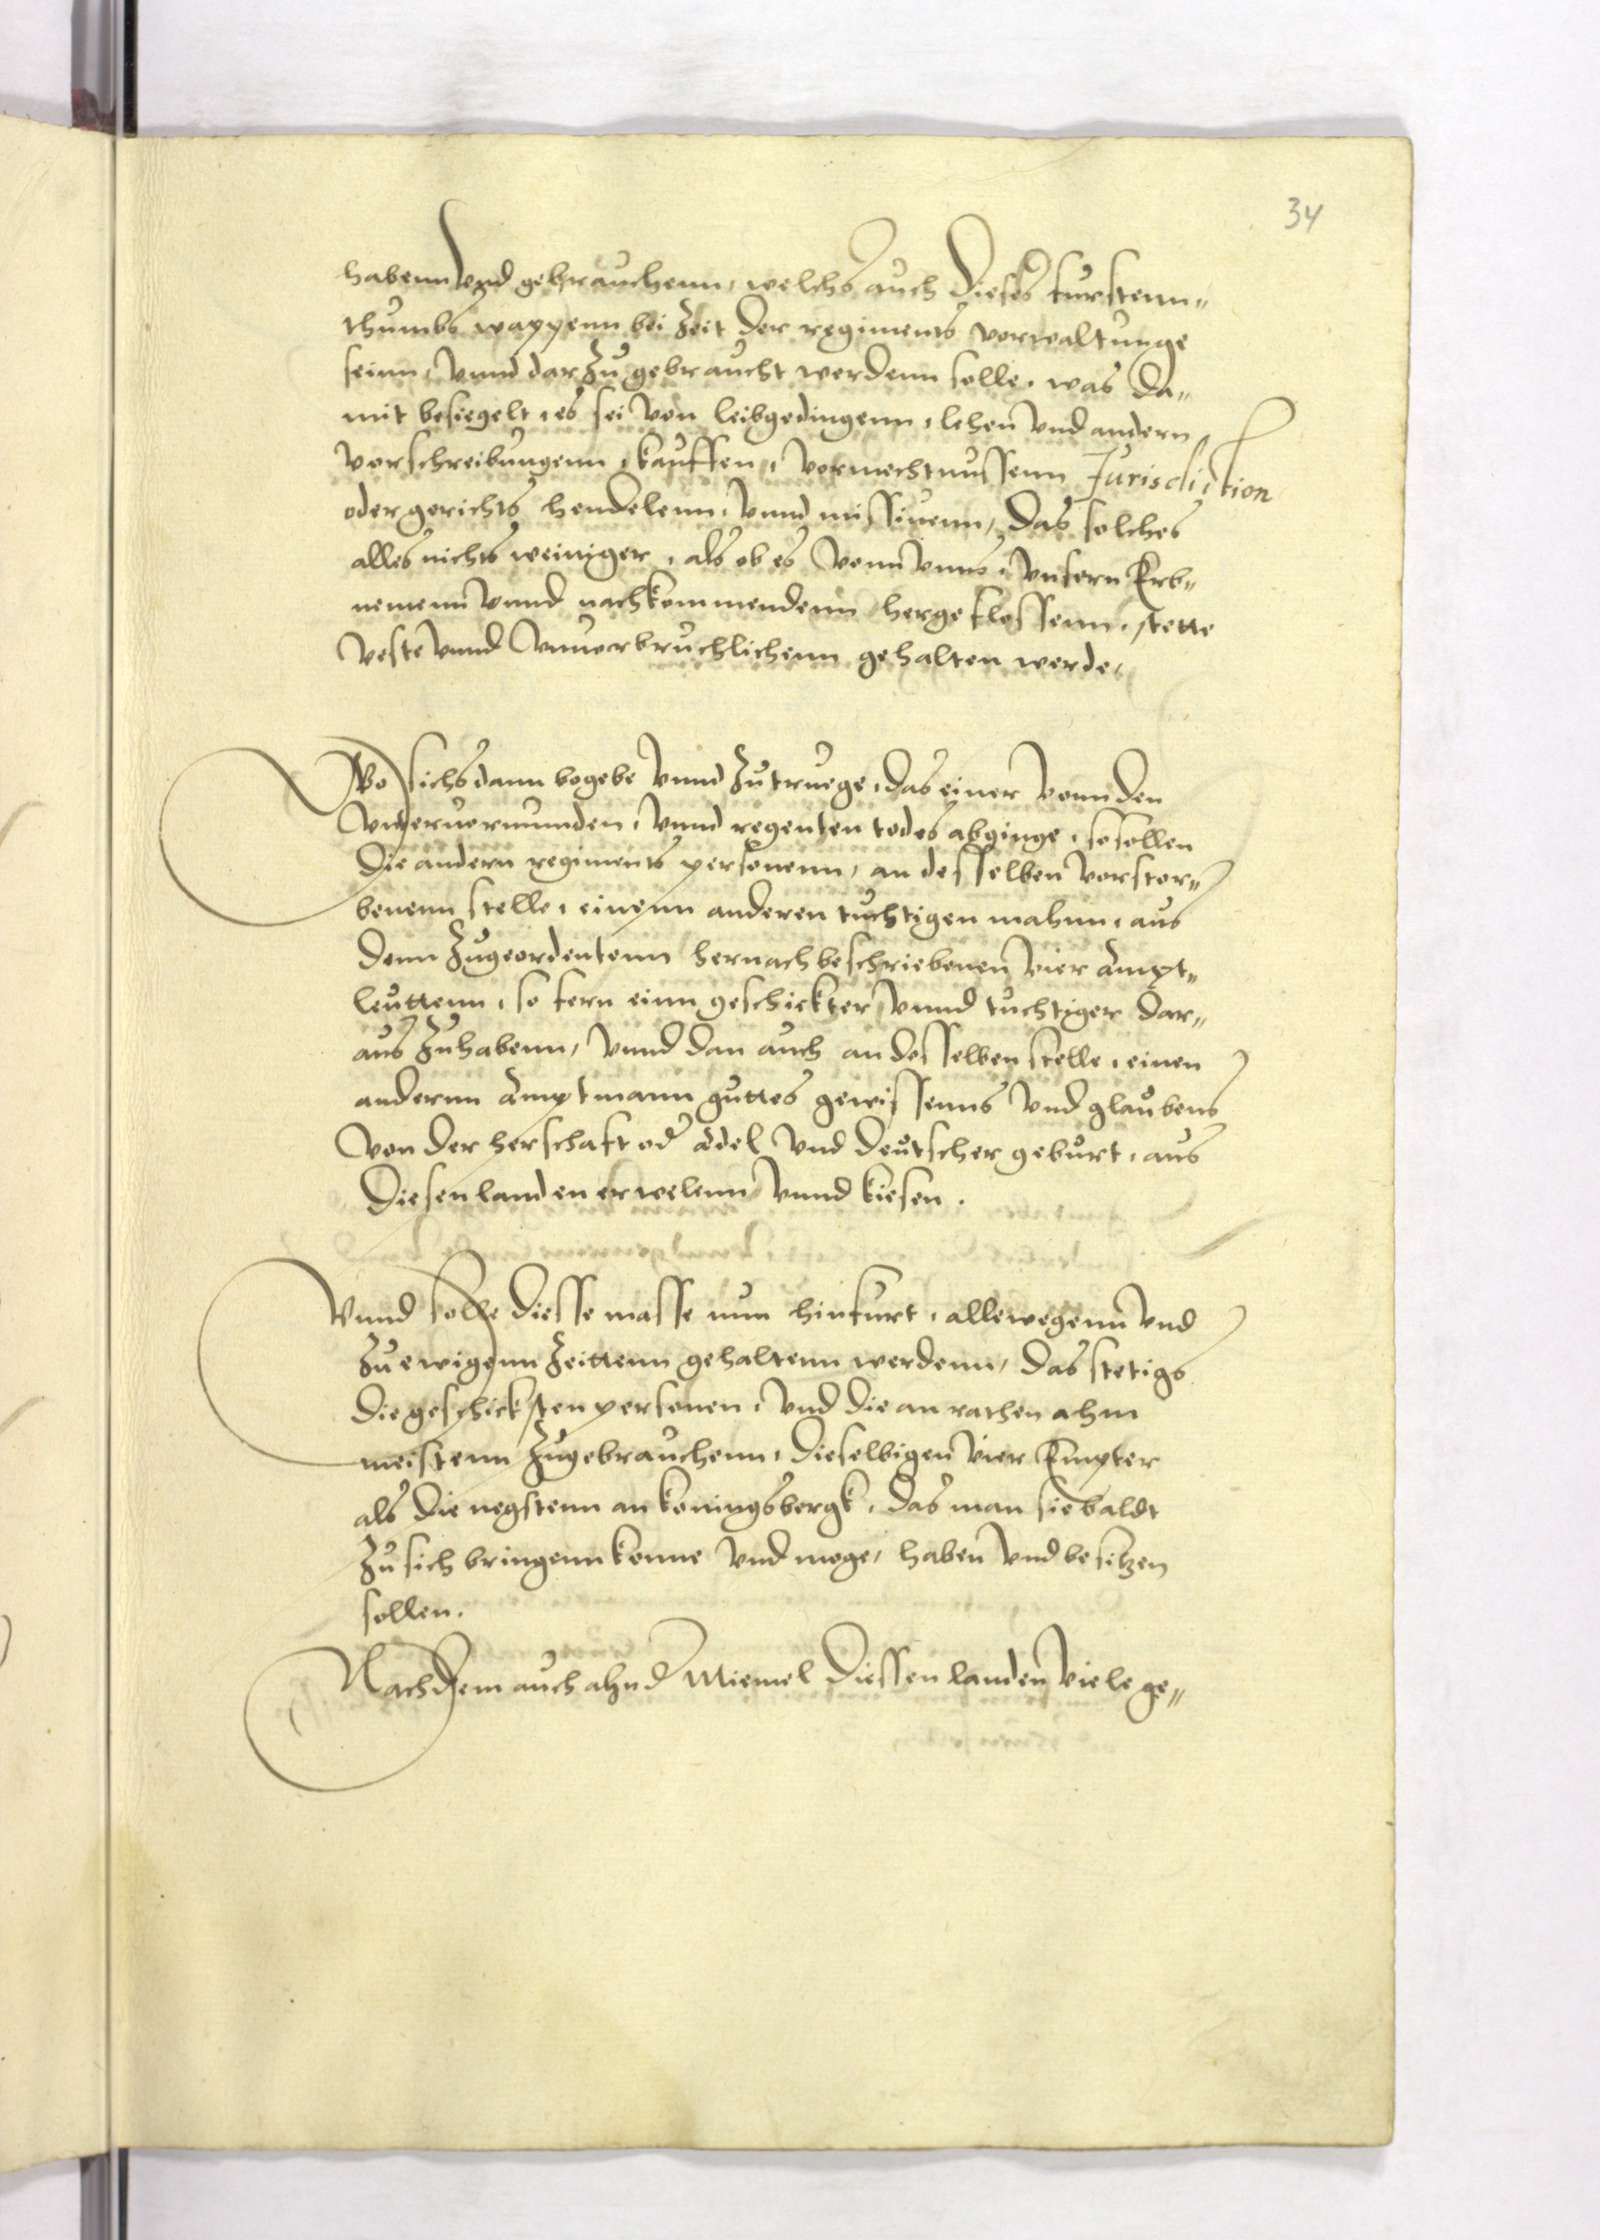 34
habenn vnd gebrauchenn, welchs auch dieses furstenn„
thumbs wappenn bei Zeit der regiments vorwaltunge
seinn, vnnd darZu gebraucht werdenn solle, was da„
mit besiegelt, es sei von leibgedingenn, lehen vnd andern
vorschreibungenn, kauffen, vormechtnussenn Jurisdiction
oder gerichts hendelenn, vnnd missiuenn, das solches
alles nichts weiniger, als ob es vonn vnns, vnsern Erb„
nemenn vnnd nachkommendenn hergeflossenn, stette
veste vnnd vnuorbruchlichenn gehalten werde,
Wo sichs dann begebe vnnd Zutruege, das einer vonn den
vnteruormunden, vnnd regenten todes abginge, so sollen
die andern regiments personenn, an desselben vorstor„
benenn stelle, einenn anderen tuchtigen mahnn, aus
denn Zugeordentenn hernach beschriebenen vier Ampt„
leuttenn, so fern einn geschickter vnnd tuchtiger dar„
aus Zuhabenn, vnnd dan auch an desselben stelle, einen
andernn Amptmann guttes gewissenns vnd glaubens
von der herschaft od adel vnd deutscher geburt, aus
diesen landen erwelenn vnnd kiesen.
Vnnd solle diesse masse nun hinfurt, allewegenn vnd
Zu ewigenn Zeittenn gehaltenn werdenn, das stetigs
die geschicksten personen, vnd die an rathen ahm
meistenn Zugebrauchenn, dieselbigen vier Empter
als die negstenn an konigsbergk, das man sie baldt
Zu sich bringenn konne vnd moge, haben vnd besitzen
sollen.
Nachdem auch ahn d Miemel diessen landen viele ge„